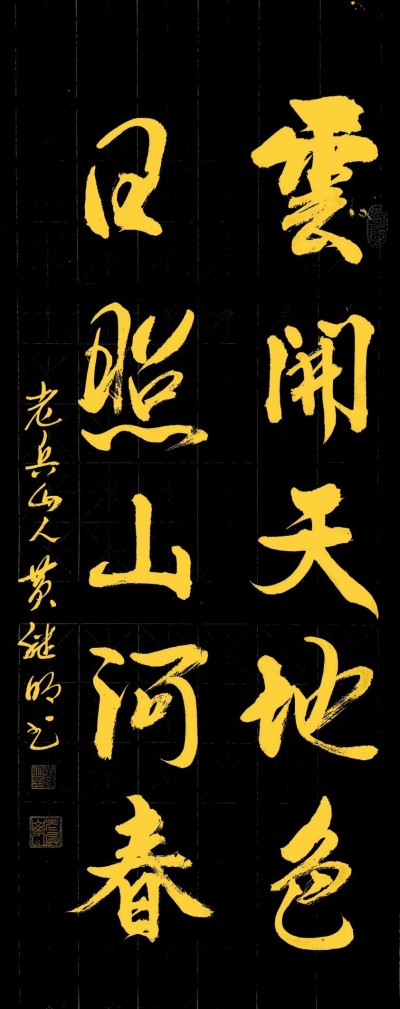 雲開天地色
日照山河春
老兵山人黄継明书